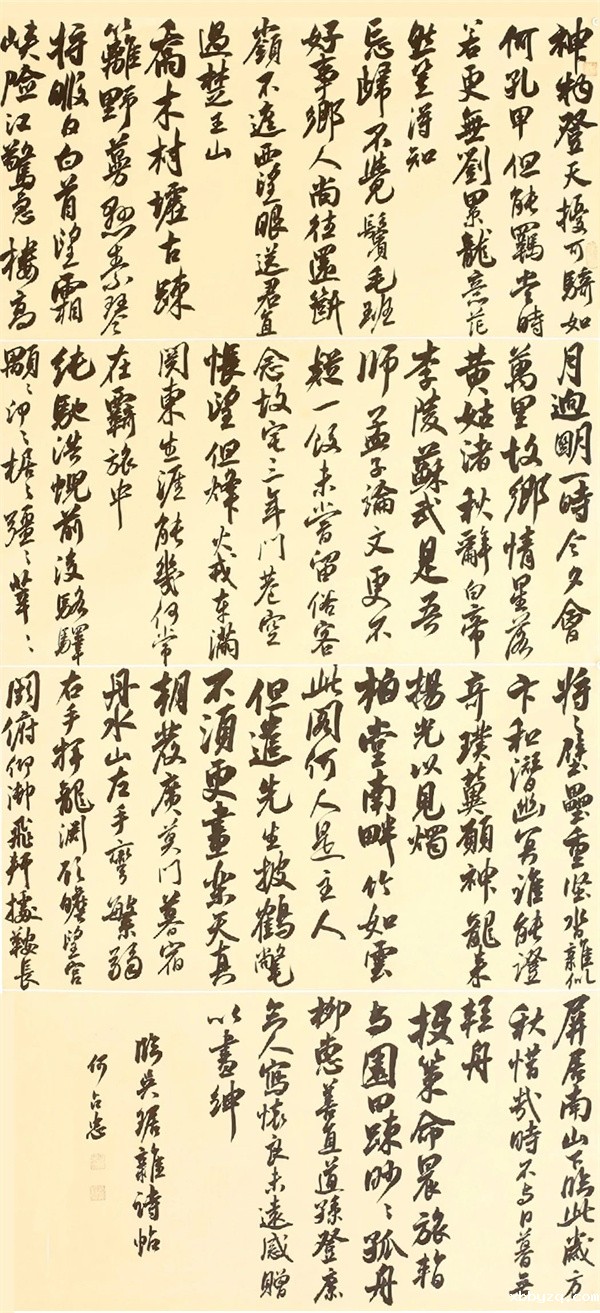 神物登天擾可騎如
何孔甲但能羈當時
若更無劉累龍意茫
然豈得知
忘歸不覺鬢毛班
好事鄉人尚往還斷
嶺不遮西望眼送君直
過楚王山
喬木村墟古疎
籬野蔓懸素琴
將暇日白首望霜
峽險江驚急樓高
月迥明一時今夕會
萬里故鄉情星落
黃姑渚秋辭白帝
李陵蘇武是吾
師孟子論文更不
疑一飯未嘗留俗客
念故宅三年門巷空
悵望但烽火戎車滿
関東生涯能幾何常
在羇旅中
純馳浩蜺前後駱驛
顒〻卬〻椐〻彊〻莘〻
將〻壁壘重堅沓雜似
卞和潛幽冥誰能證
奇璞冀願神龍來
揚光以見燭
柏堂南畔竹如雲
此閣何人是主人
但遣先生披鶴氅
不須更畫樂天真
朝發廣莫門暮宿
丹水山左手彎繁弱
右手揮龍淵顧瞻望宮
闕俯仰御飛軒據鞍長
屏居南山下臨此歲方
秋惜哉時不與日暮無
輕舟
投策命晨旅暫
與園田疎眇〻孤舟
柳惠善直道孫登庶
知人寫懷良未遠感贈
以書紳
臨吳琚雜詩帖
何占忠